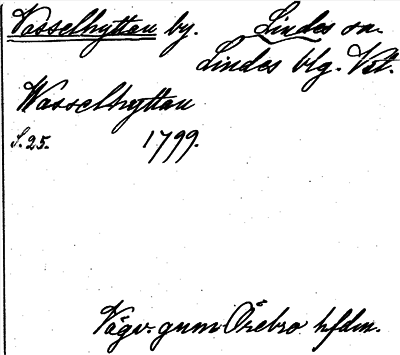 Vasselhyttan by. Lindes sn.
Lindes blg. Vstm.
Wasselhyttan
S. 25. 1799.
Vägv. gnm Örebro hfdm.